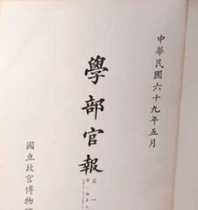 中華民國六十九年五月
學部官報
國立故宮博物